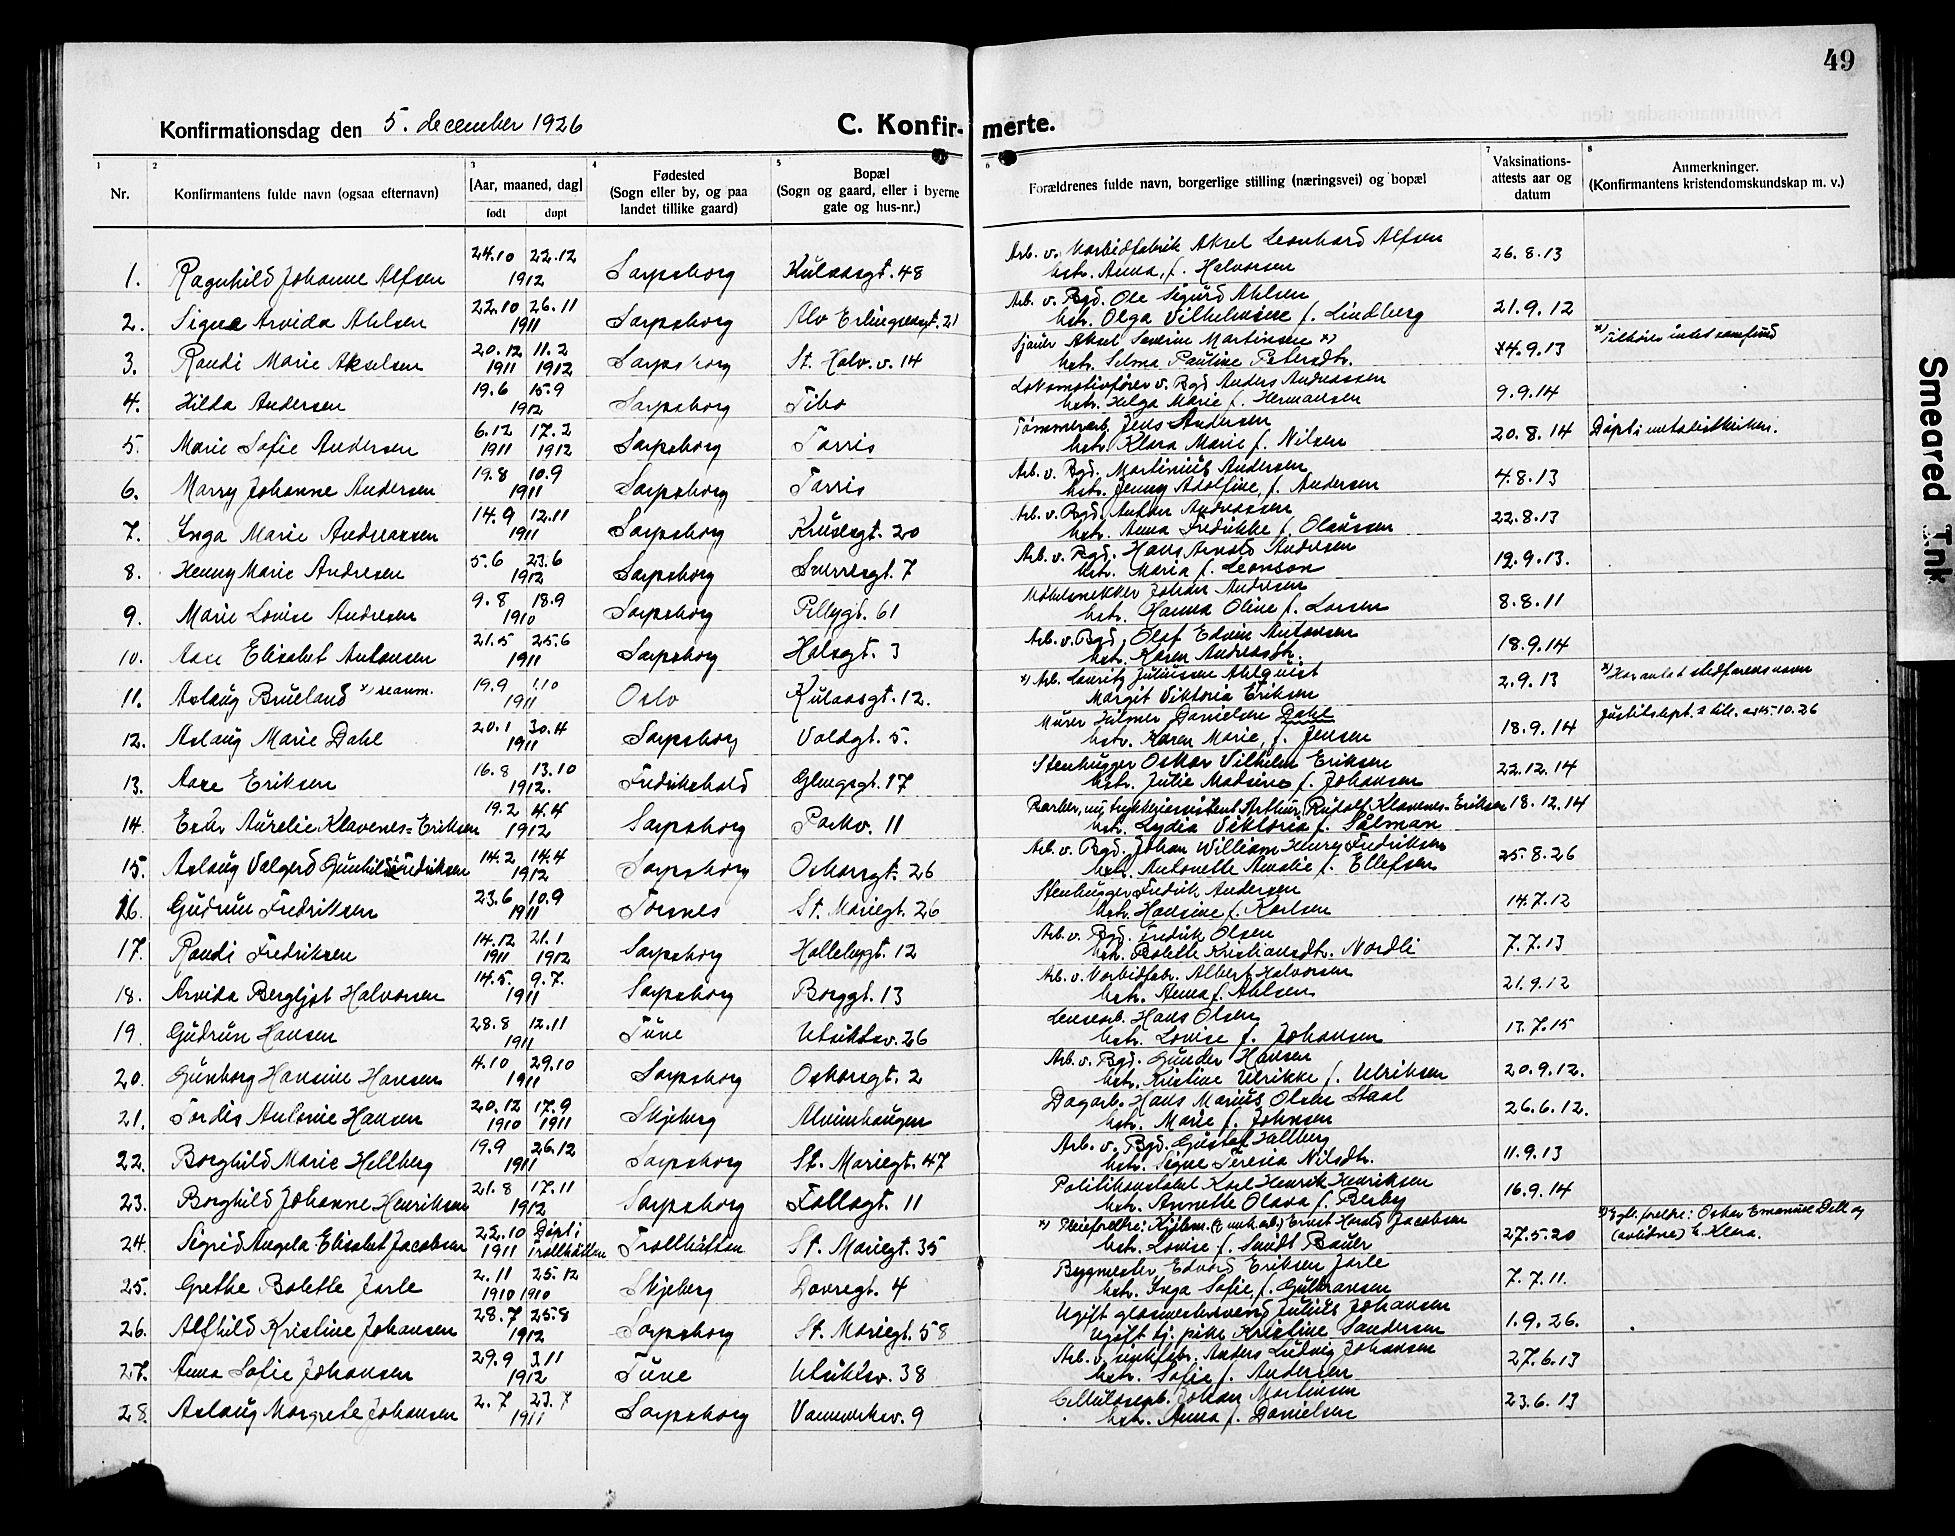 49
Konfirmationsdag den 5. december 1926 C. Konfir- merte.
1 2 3 4 5 6 7 8
Nr. Konfirmantens fulde navn (ogsaa efternavn) [Aar, maaned, dag] født døpt Fødested (Sogn eller by, og paa landet tillike gaard) Bopæl (Sogn og gaard, eller i byerne gate og hus-nr.) Forældrenes fulde navn, borgerlige stilling (næringsvei) og bopæl Vaksinations-attests aar og datum Anmerkninger. (Konfirmantens kristendomskundskap m. v.)
1. Ragnhild Johanne Alfsen 24.10 22.12 1912 Sarpsborg Kulaasgt. 48 Arb. v. Karbidfabrik Aksel Leonhard Alfsen hstr. Anna, f. Halvorsen 26.8.13
2. Signe Arvida Ahlsen 22.10 26.11 1911 Sarpsborg Alv Erlingsensgt. 21 Arb. v. Bgd. Ole Sigurd Ahlsen hstr. Olga Vilhelmine f. Lindberg 21.9.12
3. Randi Marie Akselsen 20.12 1911 11.2 1912 Sarpsborg St. Halv. v. 14 Sjauer Aksel Severin Martinsen x) hstr. Selma Pauline Petersdtr. 4.9.13 x) Tilhører intet samfund
4. Hilda Andersen 19.6 15.9 1912 Sarpsborg Tibo Lokomotivfører v. Bgd Anders Andreassen hstr. Helga Marie f. Hermansen 9.9.14
5. Marie Sofie Andersen 6.12 1911 17.2 1912 Sarpsborg Torris Tømmerarb. Jens Andersen hstr. Klara Marie f. Nilsen 20.8.14 Døpt i metodistkirken.
6. Marry Johanne Andersen 19.8 10.9 1911 Sarpsborg Torris Arb. v. Bgd. Martinius Andersen hstr. Jenny Adolfine, f. Andersen 4.8.13
7. Inga Marie Andreassen 14.9 12.11 1911 Sarpsborg Krusesgt. 20 Arb. v. Bgd. Anton Andreassen hstr. Anna Fredrikke f. Olaussen 22.8.13
8. Henny Marie Andresen 5.6 23.6 1912 Sarpsborg Sverresgt. 7 Arb. v. Bgd. Hans Arnold Andresen hstr. Maria f. Leonson 12.9.13.
9. Marie Lovise Andresen 9.8 18.9 1910 Sarpsborg Pellygt. 61 Møbelsnekker Johan Andresen hstr. Hanna Oline f. Larsen 8.8.11
10. Aase Elisabet Antonsen 21.5 25.6 1911 Sarpsborg Halsgt. 3 Arb. v. Bgd. Olaf Edvin Antonsen hstr. Karen Andreasdtr. 18.9.14
11. Aslaug Brueland x) se anm. 19.9 1.10 1911 Oslo Kulaasgt. 12. x) Arb. Lauritz Juliussen Ahlquist Margit Viktoria Eriksen 2.9.13 x) Har antat stedfarens navn
12. Aslaug Marie Dahl 20.1 30.4 1911 Sarpsborg Voldgt. 5. Murer Hilmer Danielsen Dahl hstr. Karen Marie, f. Jensen 18.9.14 Justitsdept.s till. av 5.10.26
13. Aase Eriksen 16.8 13.10 1912. Fredrikshald Glengsgt. 17 Stenhugger Oskar Vilhelm Eriksen hstr. Julie Madsine f. Johansen 22.12.14
14. Aurelie Klavenes=Eriksen 19.2 4.4 1912 Sarpsborg Parkv. 11 Arthur Rudolf Klavenes=Eriksen hstr. Lydia Viktoria f. Salman 18.12.14
15. Aslaug Valgerd Gunhild Fredriksen 14.2 14.4 1912 Sarpsborg Oskarsgt. 26 Arb. v. Bgd. Johan William Henry Fredriksen hstr. Antonette Amalie f. Ellefsen 25.8.26
16. Gudrun Fredriksen 23.6 10.9 1911 Torsnes St. Mariegt. 26 Stenhugger Fredrik Andersen hstr. Hansine f. Karlsen 14.7.12
17. Randi Fredriksen 14.12 1911 21.1 1912 Sarpsborg Hallebygt. 12 Arb. v. Bgd. Fredrik Olsen hstr. Bolette Kristiansdtr. Nordli 7.7.13
18. Arvida Bergljot Halvorsen 14.5. 9.7. 1911 Sarpsborg Borggt. 13 Arb. v. Karbidfabr. Albert Halvorsen hstr. Anna f. Ahlsen 21.9.12
19. Gudrun Hansen 28.8 12.11 1911 Tune Utsiktsv. 26 Lensearb. Hans Olsen hstr. Lovise f. Johansen 13.7.15
20. Gunborg Hansine Hansen 4.10 29.10 1911 Sarpsborg Oskarsgt. 2 Arb. v. Bgd. Gunder Hansen hstr. Kristine Ulrikke f. Ulriksen 20.9.12.
21. Tordis Antonie Hansen 20.12 1910 17.9 1911 Skjeberg Alvimhaugen Dagarb. Hans Marius Olsen Staal hstr. Marie f. Johnsen 26.6.12.
22. Borghild Marie Hellberg 19.9 26.12 1911 Sarpsborg St. Mariegt. 47 Arb. v. Bgd. Gustaf Hellberg hstr. Signe Teresia Nilsdtr. 11.9.13
23. Borghild Johanne Henriksen 21.8 17.11 1912 Sarpsborg Follosgt. 11 Politikonstabel Karl Henrik Henriksen hstr. Annette Olava f. Berby 16.9.14
24. Sigrid Angela Elisabet Jacobsen 22.10 1911 Døpt i Trollhättan Trollhättan St. Mariegt. 35 x) Pleiefedre: Kjøbm. Ernst Harald Jacobsen hstr. Lovise f. Sundt Bauer 27.5.20 x) Egtl. foreldre: Oskar Emanuel Dell og (avdøde) h. Klara.
25. Grethe Bolette Jarle 2.11 1910 25.12 1910 Skjeberg Dovregt. 4 Bygmester Edvard Eriksen Jarle hstr. Inga Sofie, f. Gulbransen 7.7.11.
26. Alfhild Kristine Johansen 28.7 25.8 1912 Sarpsborg St. Mariegt. 58 Ugift glasmestersvend Julius Johansen Ugift tj. pike Kristine Sandersen 1.9.26.
27. Anna Sofie Johansen 29.9 3.11 1912 Tune Utsiktsv. 38 Arb. v. sinkfabr. Anders Ludvig Johansen hstr. Sofie f. Andersen 27.6.13
28. Aslaug Margrete Johansen 2.7 23.7 1911 Sarpsborg Vannverksv. 9 Cellulosearb. Johan Martinsen hstr. Anna f. Danielsen 23.6.13
Smeared Ink